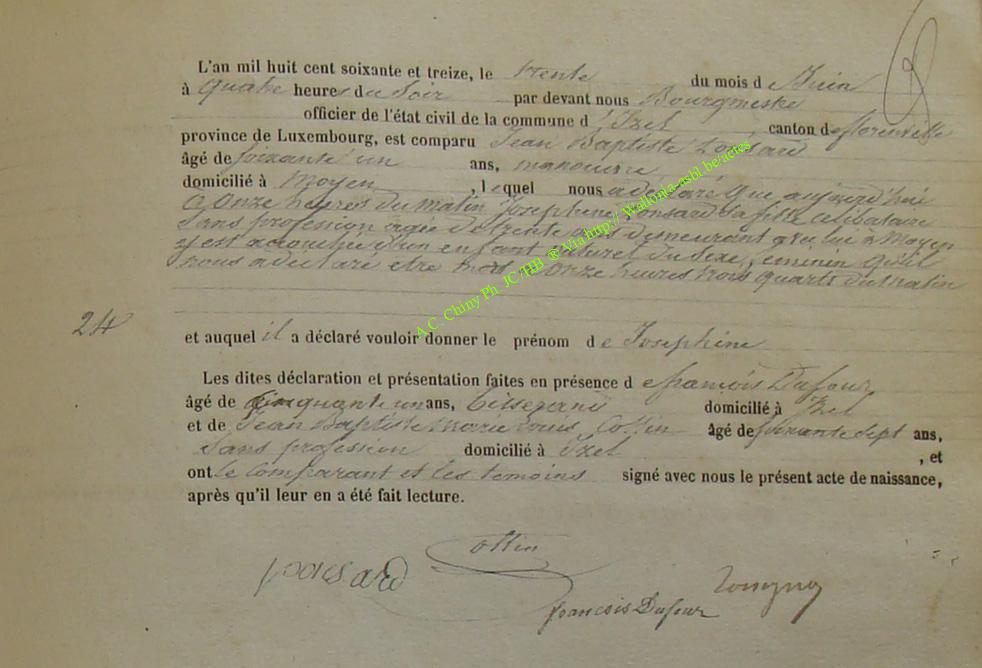 L'an mil huit cent soixante et treize, le trente du mois de Juin
à quatre heures du soir par devant nous Bourgmestre
officier de l'état civil de la commune d'Izel canton de florenville
province de Luxembourg, est comparu Jean Baptiste Ponsard
âgé de soixante un ans, manœuvre,
domicilié à Moyen, lequel nous a déclaré que aujourd'hui
à onze heures du matin Josephine Ponsard sa fille célibataire
sans profession agée de trente ans demeurant avec lui à Moyen
y est accouchée d'un enfant naturel du sexe féminin qu'il
nous a déclaré etre mort à onze heures trois quarts du matin
24
et auquel il a déclaré vouloir donner le prénom de Josephine
Les dites déclaration et présentation faites en présence de françois Dufour
âgé de cinquante un ans, domicilié à Izel
et de Jean Baptiste Marie Collin âgé de soixante sept ans,
sans profession domicilié à Izel, et
ont le comparant et les temoins signé avec nous le présent acte de naissance,
après qu'il leur en a été fait lecture.
ponsard
françois Dufour
A.C. Chiny Ph JC HB ® Via http:// Wallonia-asbl.be/actes